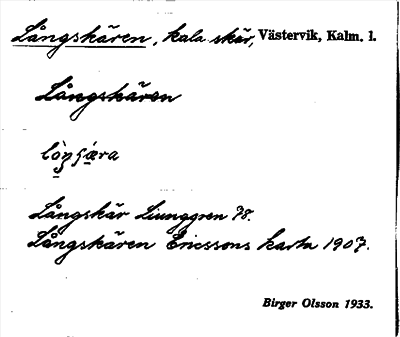 Långskären, kala skär, Västervik, Kalm. l.
Långskären
Långskär Liunggren 78.
Långskären Ericssons karta 1907.
Birger Olsson 1933.